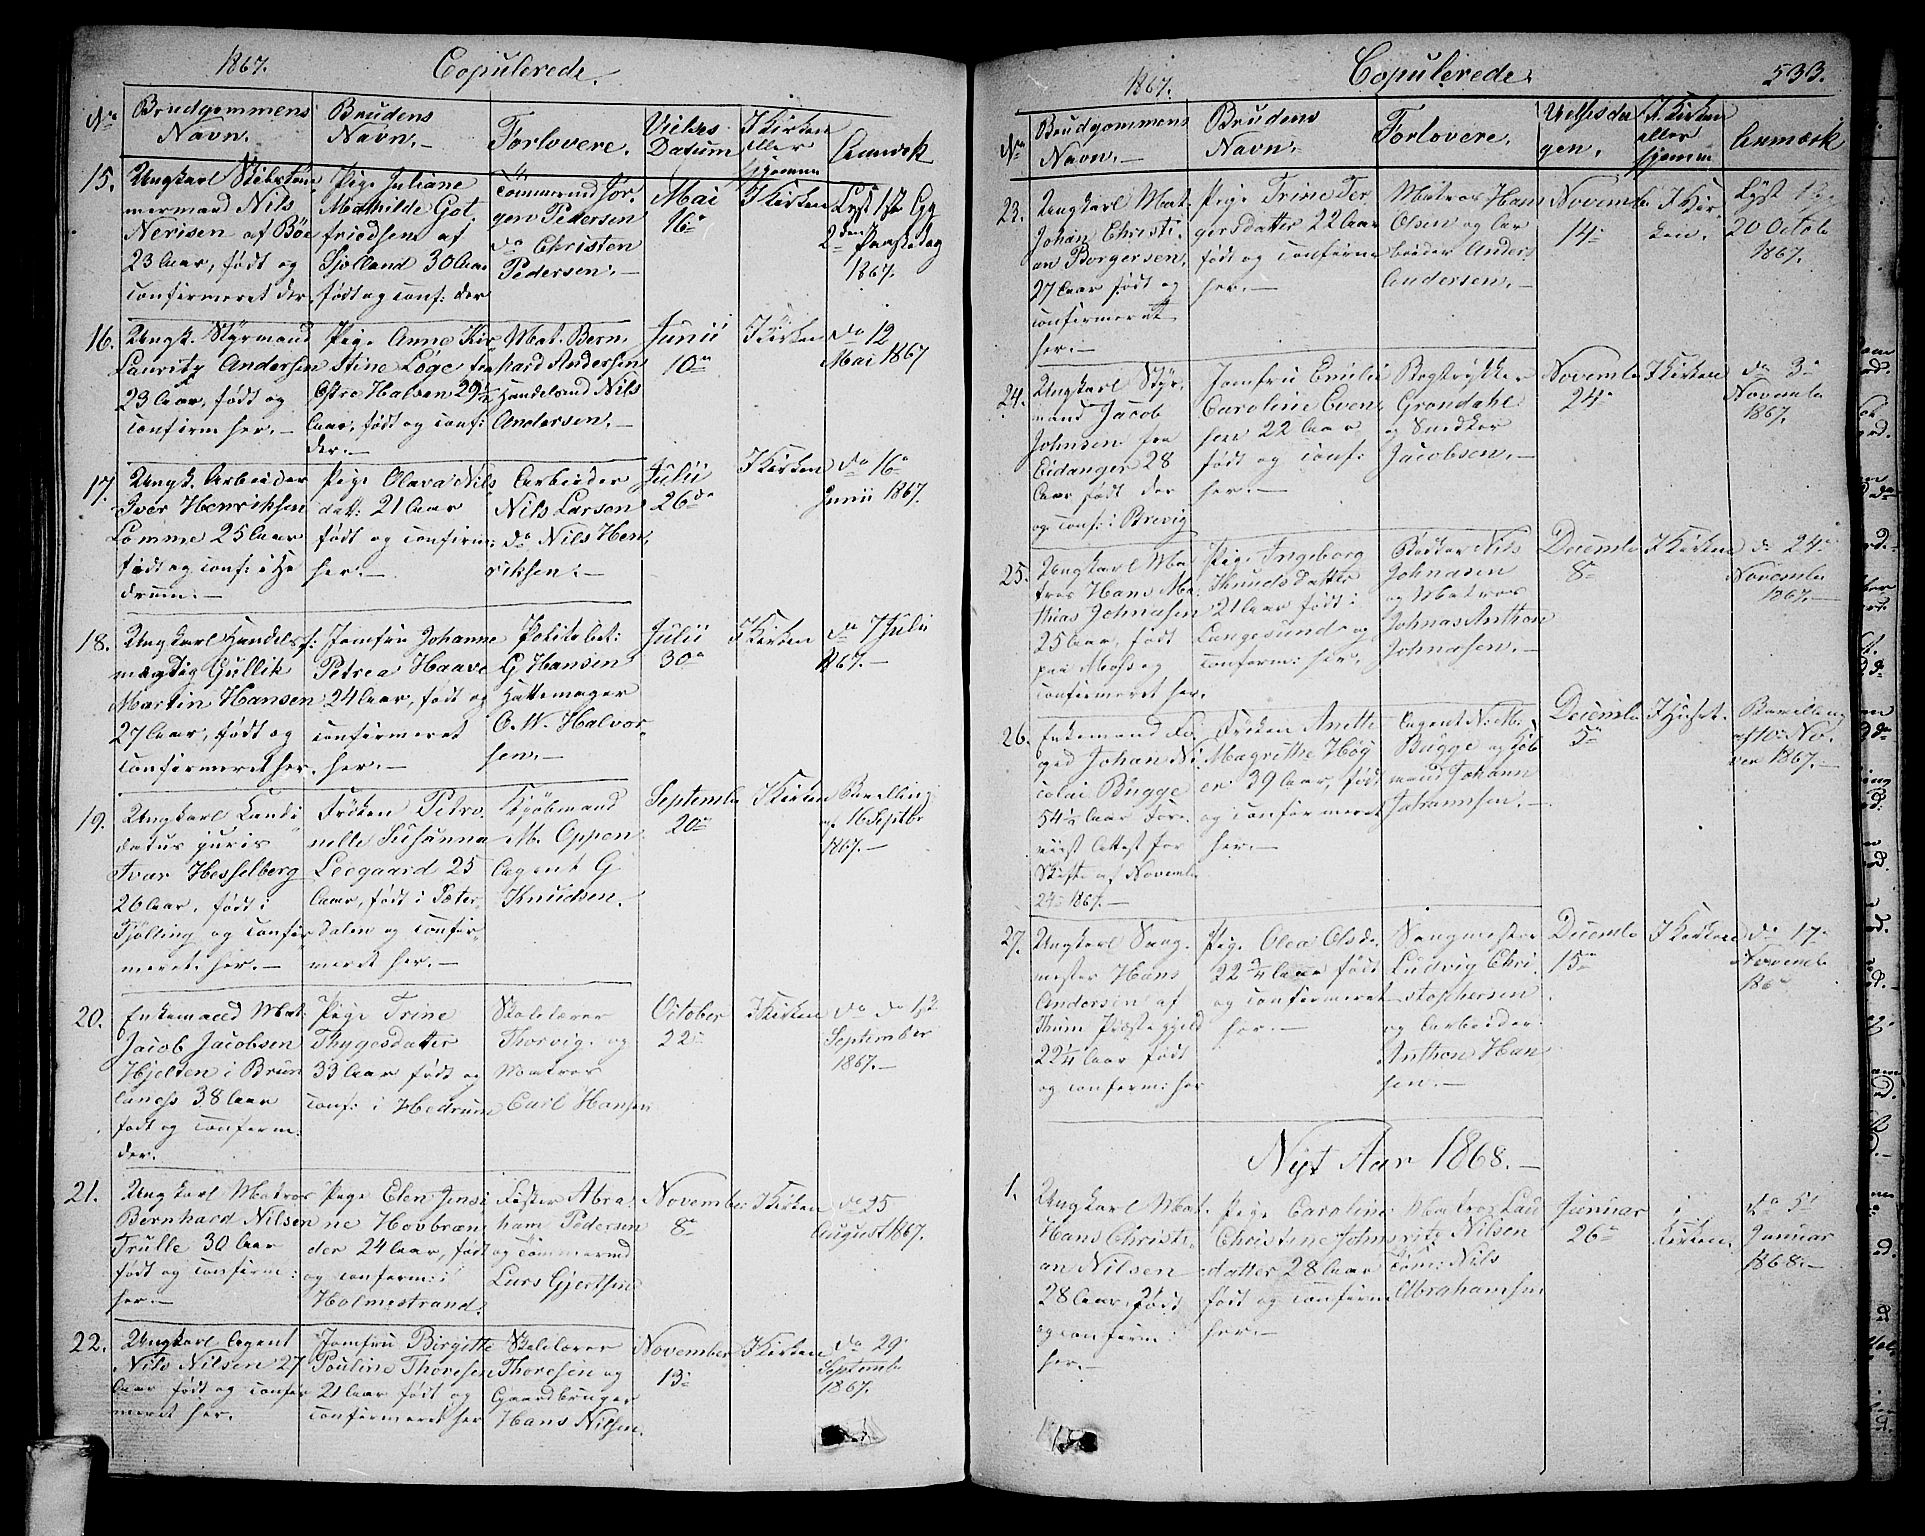 1867. Copulerede.
No Brudgommens Navn. Brudens Navn. Forlovere. Vielses Datum I Kirken eller hjemme Anmærk
15. Ungkarl
mermand Nils
Nerisen af Bøe
23 Aar, født og
confirmeret der.
Pige Juliane
Mathilde Got
friedsen af
Sjolland 30 Aar
født og conf: der
Tømmermd Jør
gen Pedersen
do Christen
Pedersen.
Mai
16de
I Kirken
Lyst 1ste Gg
2den Paaskedag
1867.
16. Ungk. Styrmand
Lauritz Andersen
23 Aar, født og
confirm her.
Pige Anne Kir
stine Løge fra
Østre Halsen 29½
Aar, født og conf:
der.
Mat. Bern
hard Andersen
Handelsmd Nils
Andersen.
Junii
10de
I Kirken
do 12
Mai 1867
17. Ungk. Arbeider
Iver Henriksen
Lømme 25 Aar
født og conf: i He
drum.
Pige Olava Nils
datt: 21 Aar
født og confirm:
her.
Arbeider
Nils Larsen
do Nils Hen
riksen.
Julii
26de
I Kirken
do 16de
Junii 1867.
18. Ungkarl Handelsf:
mægtig Gullik
Martin Hansen
27 Aar, født og
confirmeret her.
Jomfru Johanne
Petrea Haave
24 Aar, født og
confirmeret
her.
Politibet:
G Hansen
Hattemager
O. W. Halvor
sen.
Julii
30de
I Kirken
do 7 Julii
1867.
19. Ungkarl Candi
datus juris
Ivar Hesselberg
26 Aar, født i
Tjølling og confir
meret her.
Frøken Petro
nelle Susanna
Leegaard 25
Aar, født i Sæter
dalen og confir
meret her.
Kjøbmand
M. Oppen
Agent G
Knudsen.
Septembr
20de
I Kirken
Bevilling
af 16 Septbr
1867.
20. Enkemand Mat.
Jacob Jacobsen
Hjelten i Brun
lanes 38 Aar
født og confirm:
der.
Pige Trine
Thygesdatter
33 Aar født og
conf: i Hedrum
Skolelærer
Thorvig og
Matros
Carl Hansen
October
22de
I Kirken
do do 1ste
September
1867.
21. Ungkarl Matros
Bernhard Nilsen
Trulle 30 Aar
født og confirm:
her.
Pige Elen Jensi
ne Hovbræn
der 24 Aar, født
og confirm: i
Holmestrand.
Fisker Abra
ham Pedersen
og Tømmermd
Lars Gjertsen
November
8de
I Kirken
do 25
August 1867.
22. Ungkarl Agent
Nils Nilsen 27
Aar født og confir
meret her.
Jomfru Birgitte
Pauline Thoresen
21 Aar født og
confirmeret her
Skolelærer
Thoresen og
Gaardbruger
Hans Nilsen.
November
13de
I Kirken
do 29
Septembr
1867.
1867. Copulerede. 533.
No Brudgommens Navn. Brudens Navn. Forlovere. Vielsesda gen. I Kirken eller hjemme Anmærk
23. Ungkarl Mat.
Johan Christi
an Borgersen
27 Aar født og
confirmeret
her.
Pige Trine Tor
gersdatter 22 Aar
født og confirm
her.
Matros Hans
Olsen og Ar
beider Anders
Andersen.
Novemb
14de
I Kir
ken.
Lyst 1ste Gg
20 Octob
1867.
24. Ungkarl Styr
mand Jacob
Johnsen fra
Eidanger 28
Aar født der
og conf: i Brevig
Jomfru Emilie
Caroline Even
sen 22 Aar
født og conf:
her.
Bogtrykker
Grøndahl
og Snedker
Jacobsen.
Novembr
24de
I Kirken
do 3de
Novembr
1867.
25. Ungkarl Ma
tros Hans Ma
thias Johnasen
25 Aar, født
paa Moss og
confirmeret her.
Pige Ingeborg
Knudsdatter
21 Aar født i
Langesund og
confirm: her.
Bødker Nils
Johnasen
og Matros
Johnas Anthon
Johnasen.
Decembr
8de
I Kirken
do 24de
Novembr
1867.
26. Enkemand Fo
ged Johan Ni
colai Bugge
54½ Aar Fore
viist Attest for
Skifte af Novembr
24de 1867.
Frøken Anette
Magrethe Høg
39 Aar, født
og confirmeret
her.
Agent N. M.
Bugge og Kjøb
mand Johann
Johannsen.
Decembr
5de
I Huset.
Bevilling
af 10de No
vbr 1867.
27. Ungkarl Seng
mester Hans
Andersen af
Thum Præstegjeld
22¼ Aar født
og confirm: her
Pige Olea Olsd.
22¾ Aar født
og confirmeret
her.
Sengmester
Ludvig Chri
stophersen
og Arbeider
Anthon Han
sen.
Decembr
15de
I Kirken
do 17de
Novembr
Nyt Aar 1868.
1. Ungkarl Mat.
Hans Christi
an Nilsen
28 Aar, født
og confirm:
her.
Pige Caroline
Christine Johns
datter 28 Aar
født og confirm
her.
Matros Lau
ritz Nilsen
Tøm: Nils
Abrahamsen
Januar
26de
i
Kirken.
do 5te
Januar
1868.